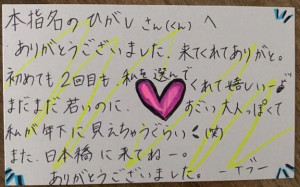 本指名のひがしさん(くん)へ
ありがとうございました。来てくれてありがと。
初めても2回目も私を選んでくれて嬉しいー
まだまだ若いのに、すごい大人っぽくて
私が年下に見えちゃうぐらい(笑)
また日本橋に来てねー。
ありがとうございました。